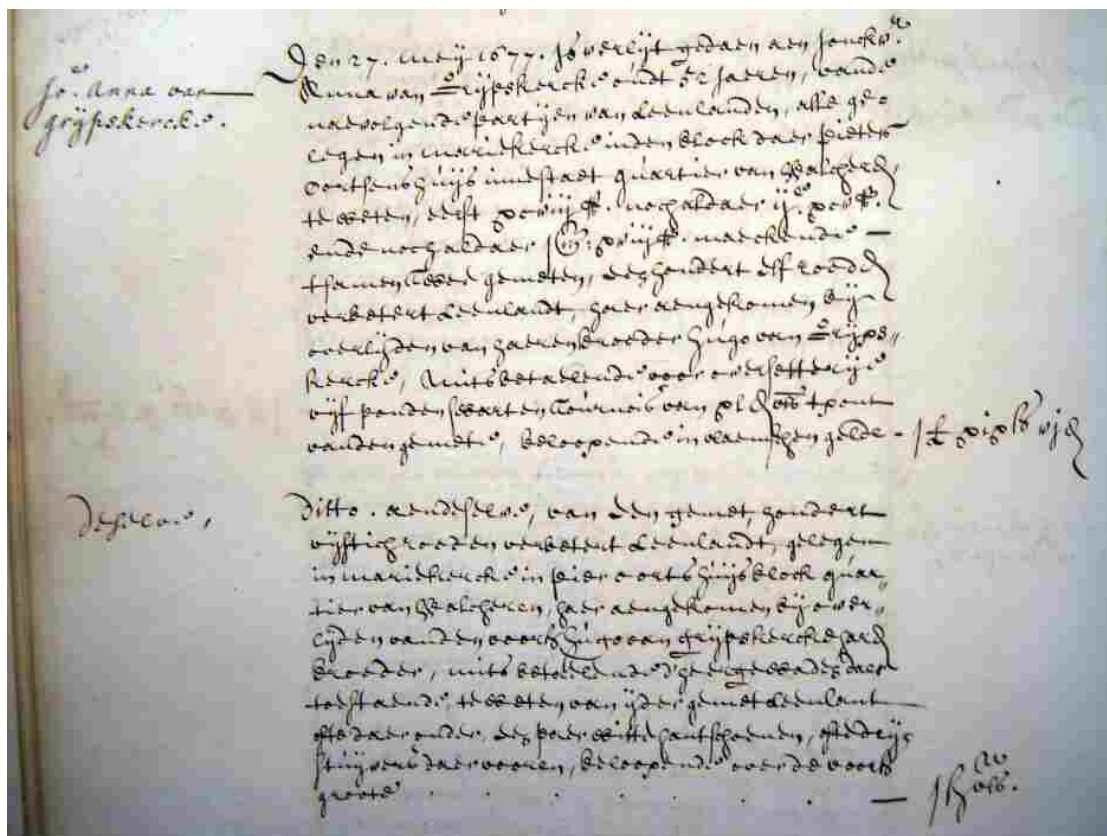 Jo.e Anna van
grijpskercke.
Den 27. Meij 1677. Is verlijt gedaen aen Jonckvr.
Anna van Grijpskercke oudt 52 jaeren, vande
naevolgende partijen van Leenlanden, alle ge-
legen in Mariekercke inden block daer Pieter
Oortsens huijs inne staet quartier van Walcheren
te weten, eerst noch aldaer
ende noch aldaer maeckende
tsamen twee gemeten, hondert elff roeden
verbetert Leenlandt, haer aengekomen bij
overlijden van haeren broeder Hugo van Grijps-
kercke, Mits betaelende voor oversetterije
vijf ponden swarten Tournois van tpont
van den gemete, beloopende in vlaemschen gelde -
Deselve,
Ditto. aen deselve, van een gemet, hondert
vijftich roeden verbetert Leenlandt, gelegen
in Mariekercke in Pier Oorts huijs block quar-
tier van Walcheren, haer aengekomen bij over-
lijden van den voors. Hugo van Grijpskercke haren
broeder, mits betaelende d'heergewaden daer
toe staende, te weten van ijder gemet Leenlant
ofte daer onder, een paer witte hantschoenen, ofte drije
stuijvers daer vooren, beloopende over de voors.
groote . . . . . —